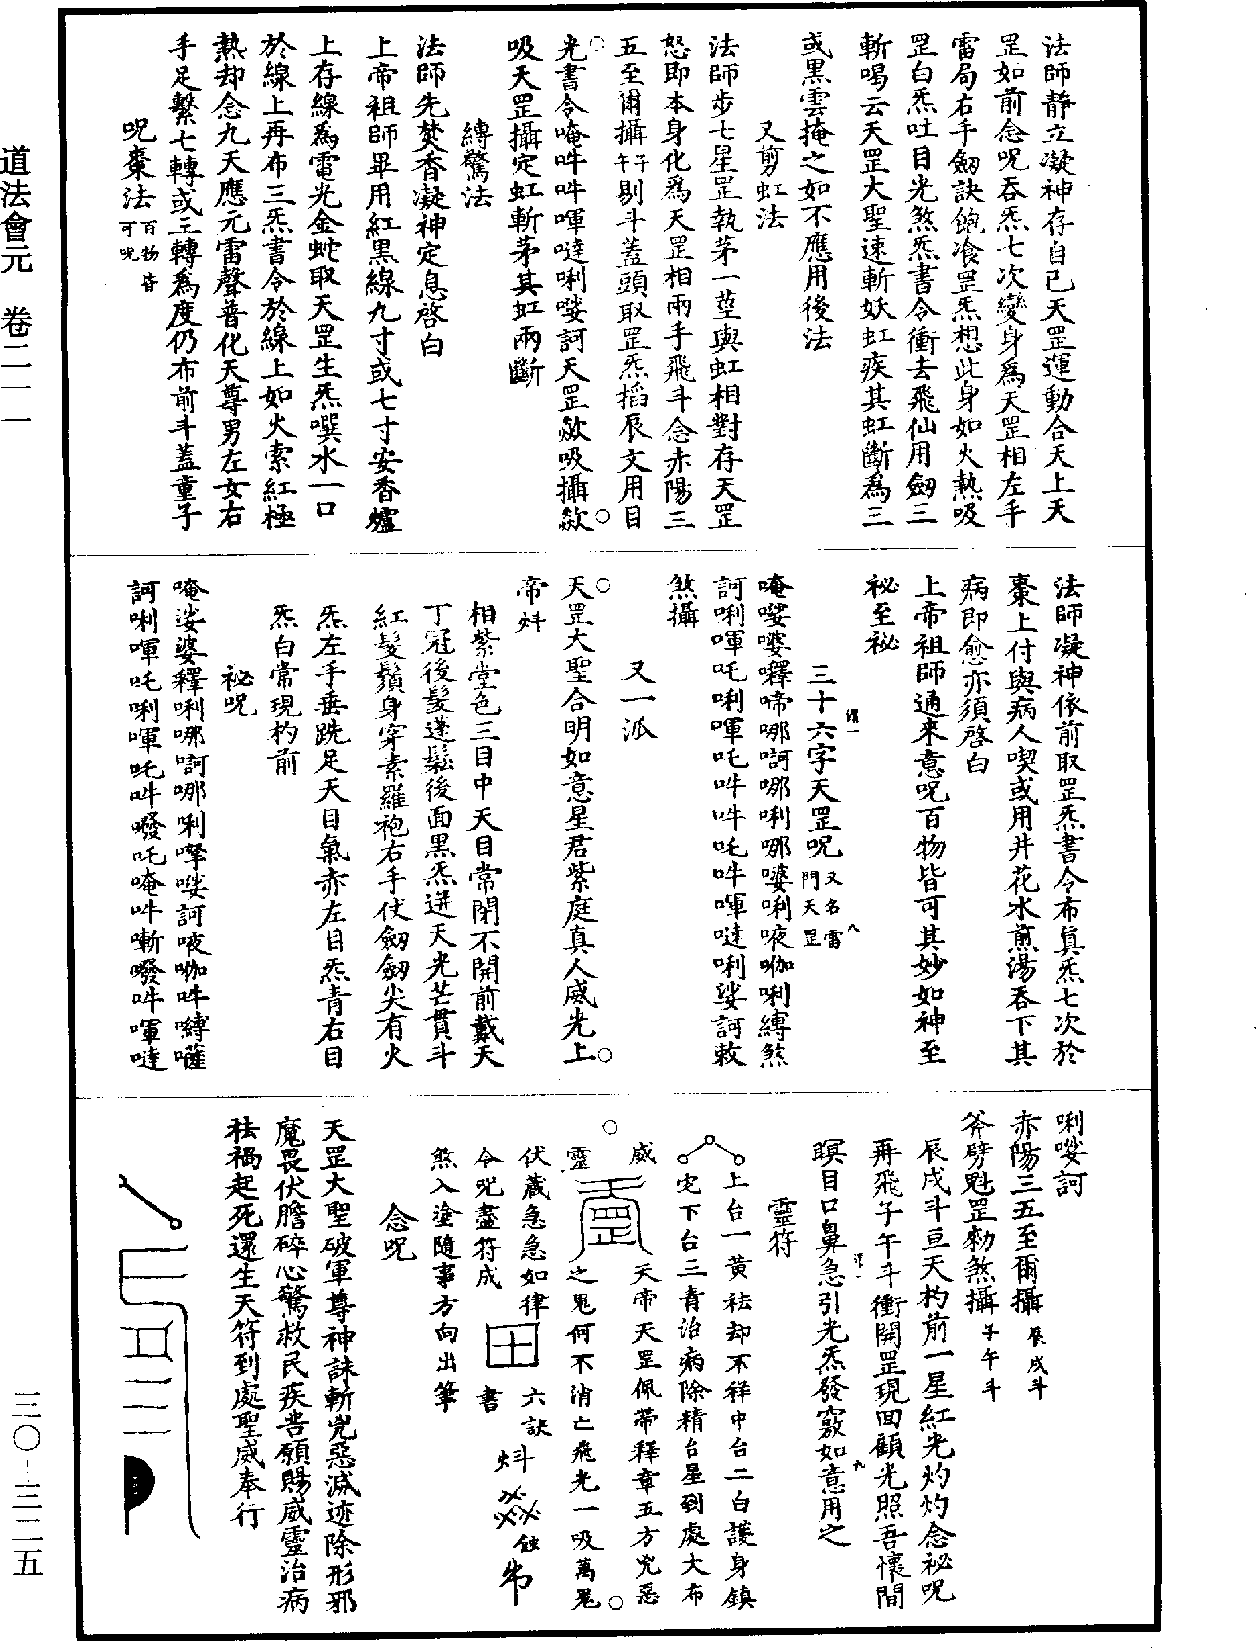 道法會元　卷二一一
三〇-三二五
法師靜立凝神存自己天罡運動合天上天
罡如前念呪吞炁七次變身爲天罡相左手
雷局右手劒訣飽飡罡炁想此身如火熱吸
罡白炁吐目光煞炁書令衝去飛仙用劒三
斬喝云天罡大聖速斬妖虹疾其虹斷爲三
或黑雲掩之如不應用後法
又剪虹法
法師步七星罡執茅一莖與虹相對存天罡
怒即本身化爲天罡相兩手飛斗念赤陽三
五至爾攝午子剔斗蓋頭取罡炁搯辰文用目
光書令唵吽吽㖶噠唎㗚訶天罡歘吸攝歘
吸天罡攝定虹斬茅其虹兩斷
縛驚法
法師先焚香凝神定息啓白
上帝祖師畢用紅黑線九寸或七寸安香爐
上存線爲電光金蛇取天罡生炁噀水一口
於線上再布三炁書令於線上如火索紅極
熱却念九天應元雷聲普化天尊男左女右
手足繫七轉或三轉爲度仍布前斗蓋童子
呪棗法百物皆可呪
法師凝神依前取罡炁書令布眞炁七次於
棗上付與病人喫或用井花水煎湯吞下其
病即愈亦須啓白
上帝祖師通來意呪百物皆可其妙如神至
祕至祕
三十六字天罡呪又名雷門天罡
唵㗚㗑釋啼哪訶哪唎哪婆唎唹咖唎縛煞
訶唎㖶吒唎㖶吒吽吽吒吽㖶噠唎娑訶敕
煞攝
又一派
天罡大聖合明如意星君紫庭真人威光上
帝㪵
相紫堂色三目中天目常閉不開前戴天
丁冠後髮蓬鬆後面黑炁迸天光芒貫斗
紅髮鬚身穿素羅袍右手仗劒劒尖有火
炁左手垂跣足天目氣赤左目炁青右目
炁白常現杓前
祕呪
唵娑婆釋唎哪訶哪唎㘄㗚訶唹咖吽縛囉
訶唎㖶吒唎㖶吒吽㗶吒唵吽嘶㗶吽㖶噠
唎㗚訶
赤陽三五至爾攝辰戌斗
斧劈魁罡勑煞攝子午斗
辰戌斗亘天杓前一星紅光灼灼念祕呪
再飛子午斗衝開罡現回顧光照吾懷間
瞑目口鼻急引光炁發竅如意用之
靈符
上台一黃祛却不祥中台二白護身鎮
宅下台三青治病除精台星到處大布
威
天帝天罡佩帶釋章五方兇惡
靈
之鬼何不消亡飛光一吸萬鬼
伏藏急急如律
令呪盡符成
六訣
書
煞入塗隨事方向出筆
念呪
天罡大聖破軍尊神誅斬兇惡滅迹除形邪
魔畏伏膽碎心驚救民疾苦願賜威靈治病
祛禍起死還生天符到處聖威奉行